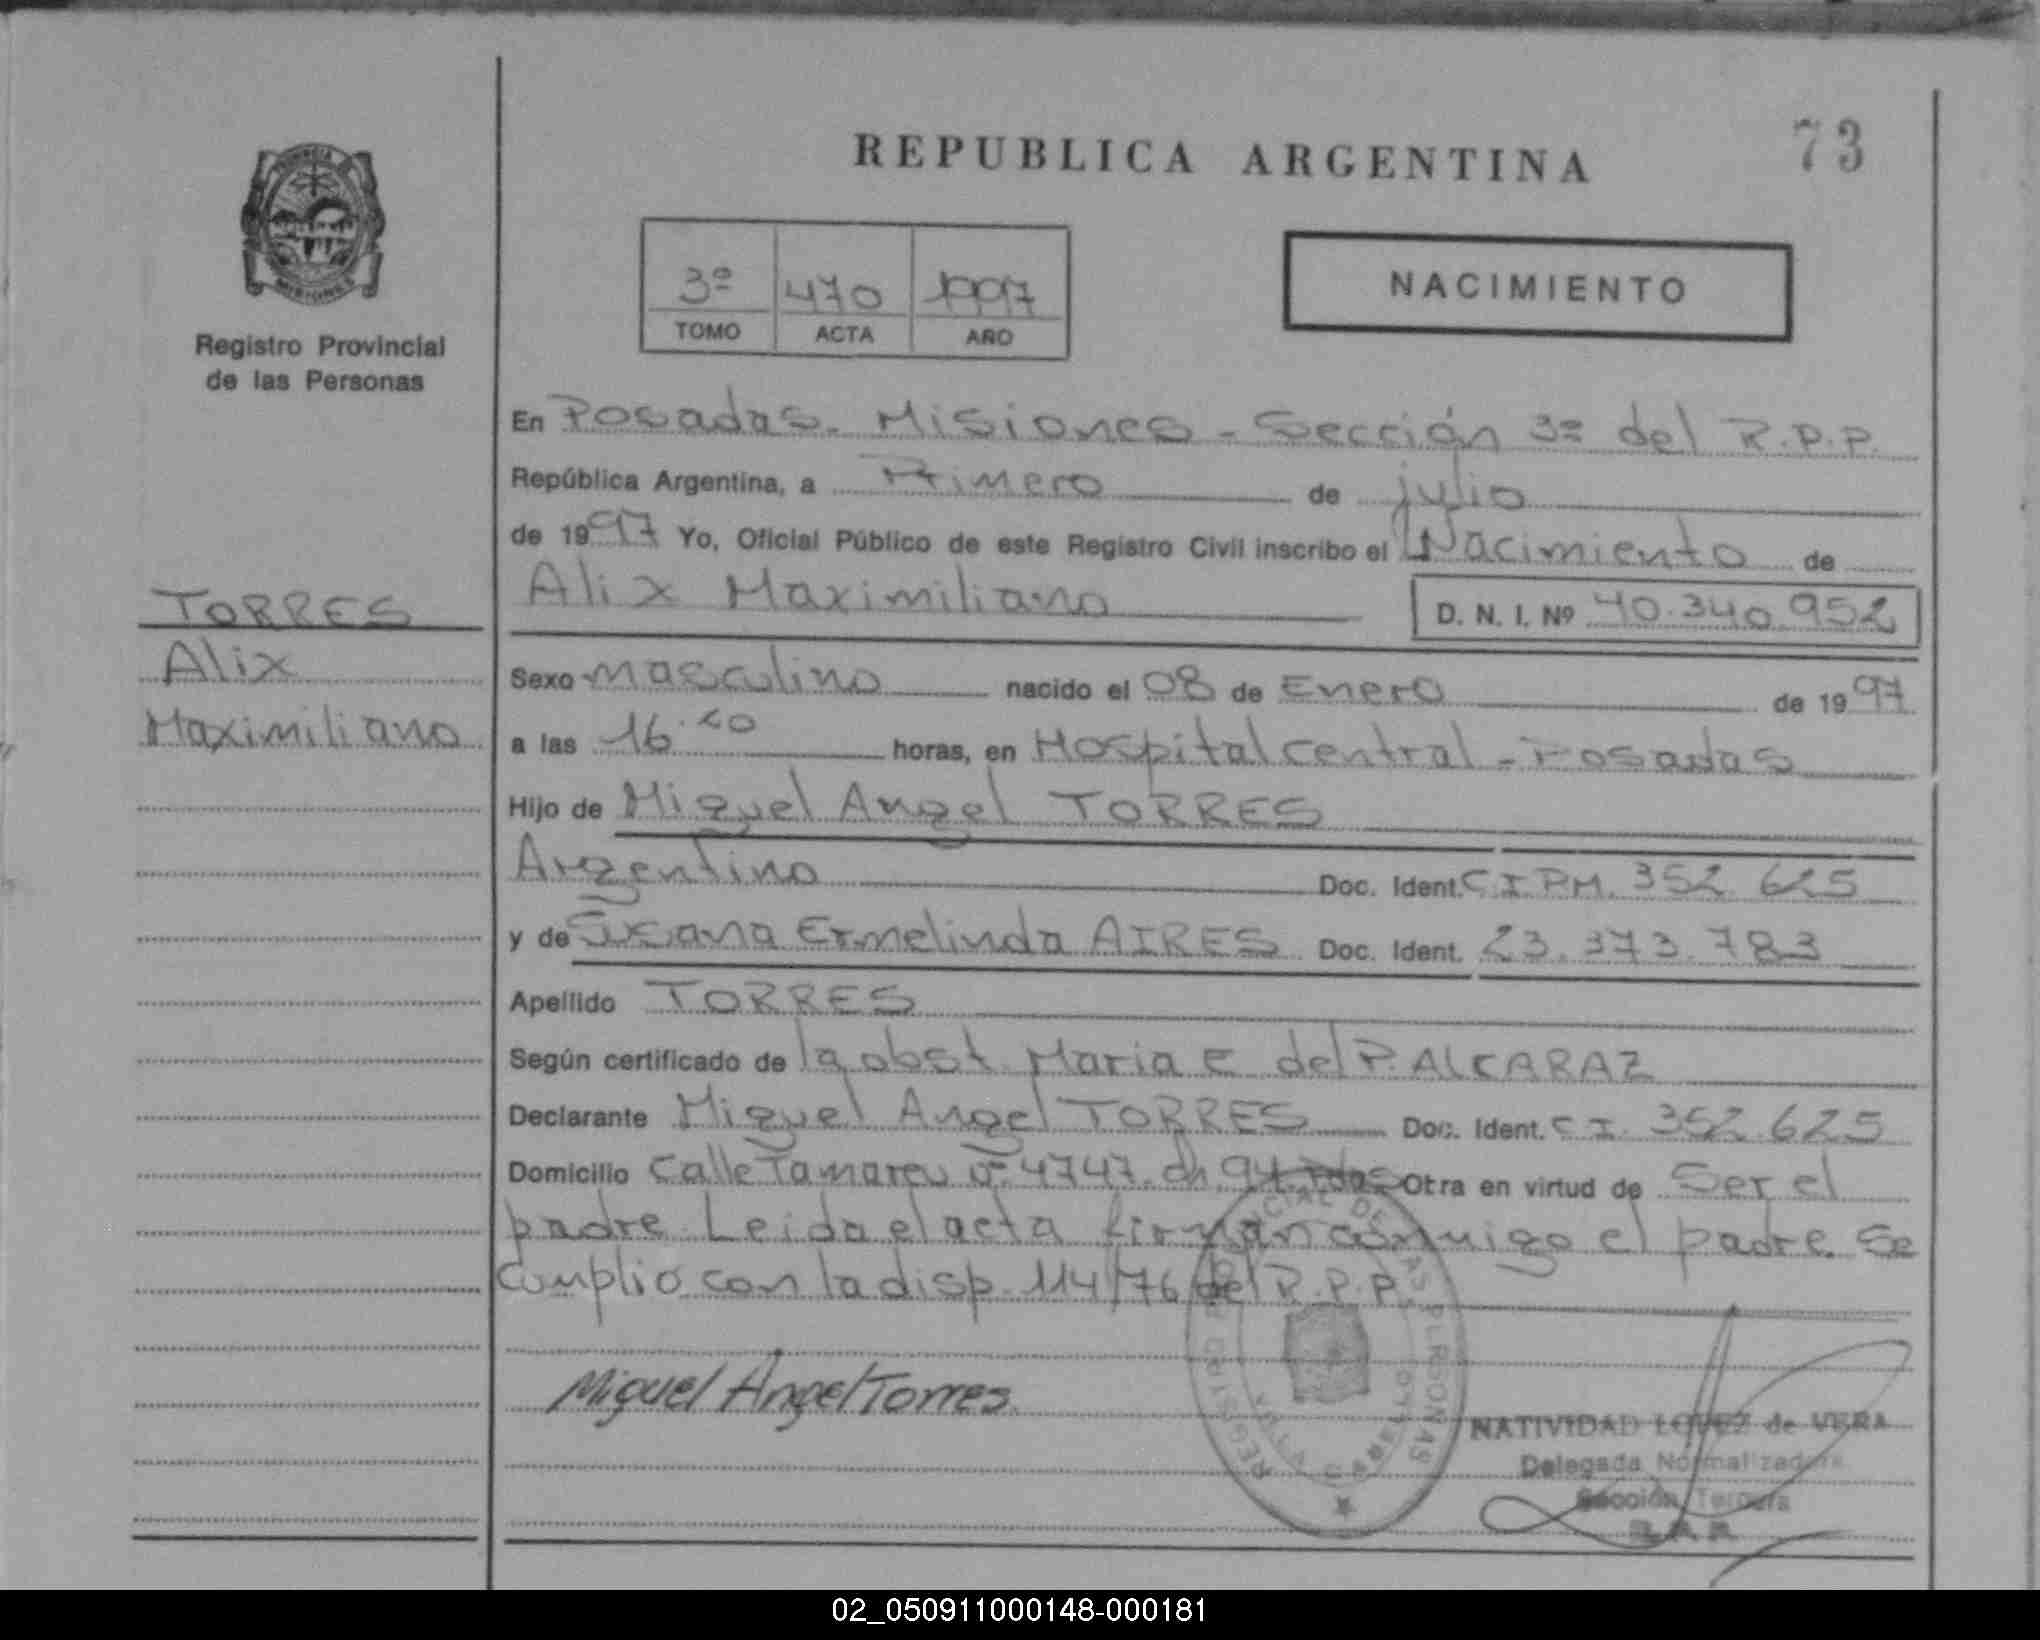 REPUBLICA ARGENTINA
73
PROVINCIA
MISIONES
Registro Provincial
de las Personas
3º 470 1997
TOMO ACTA AÑO
NACIMIENTO
En Posadas - Misiones - Sección 3ª del R.P.P.
República Argentina, a Primero de julio
de 1997 Yo, Oficial Público de este Registro Civil inscribo el Nacimiento de
Alix Maximiliano D. N. I. Nº 40.340.952
TORRES
Alix
Maximiliano
Sexo masculino nacido el 08 de Enero de 1997
a las 16.20 horas, en Hospital central - Posadas
Hijo de Miguel Angel TORRES
Argentino Doc. Ident. C.I.P.M. 352.625
y de Susana Ermelinda AIRES Doc. Ident. 23.373.783
Apellido TORRES
Según certificado de la obst. Maria E del P. ALCARAZ
Declarante Miguel Angel TORRES Doc. Ident. C.I. 352.625
Domicilio Calle nº 4747. ch. 94. Pdas Otra en virtud de Ser el
padre. Leida el acta firman conmigo el padre. Se
cumplió con la disp. 114/76 del R.P.P.
Miguel Angel Torres
NATIVIDAD LOPEZ de VERA
Delegada Normalizadora
Sección Tercera
02_050911000148-000181